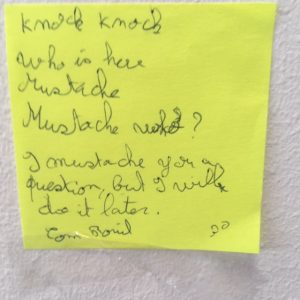 Knock Knock
Who is here
Mustache
Mustache who?
I mustache you a
question, but I will
do it later.